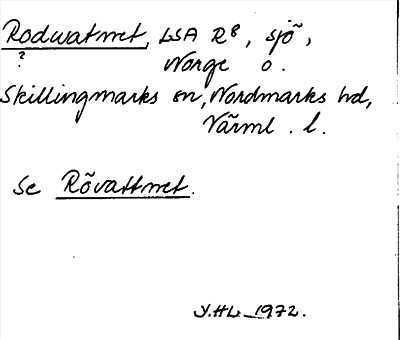 Rodwatnet, LSA R8, sjö,
? Norge o.
Skillingmarks sn, Nordmarks hd,
Värml. l.
se Rövattnet.
Y.HL_1972.